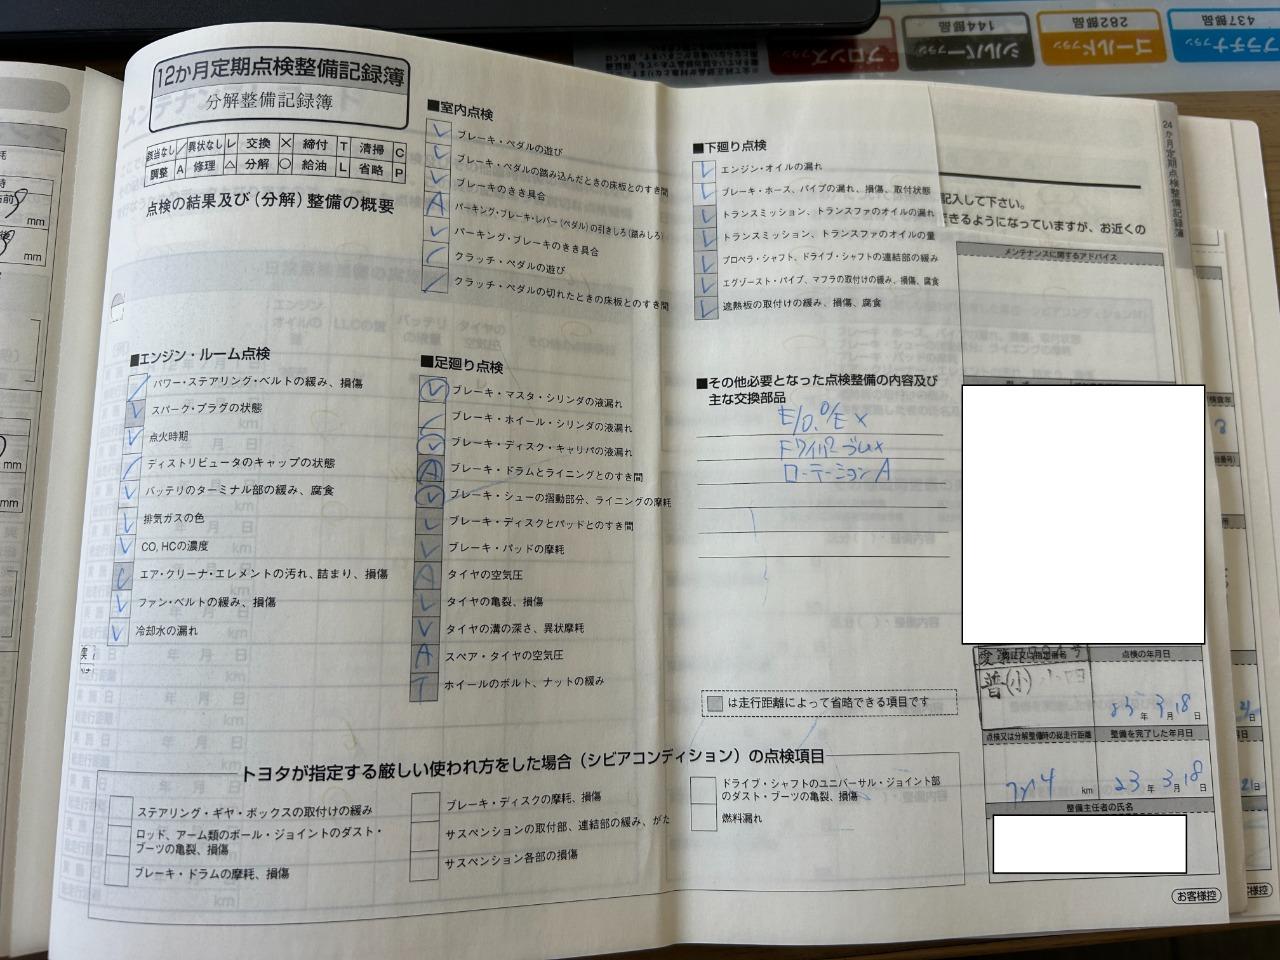 12か月定期点検整備記録簿
分解整備記録簿
該当なし / 異状なし レ 交換 × 締付 T 清掃 C
調整 A 修理 △ 分解 ○ 給油 L 省略 P
点検の結果及び(分解)整備の概要
■室内点検
レ ブレーキ・ペダルの遊び
レ ブレーキ・ペダルの踏み込んだときの床板とのすき間
レ ブレーキのきき具合
A パーキング・ブレーキ・レバー(ペダル)の引きしろ(踏みしろ)
レ パーキング・ブレーキのきき具合
/ クラッチ・ペダルの遊び
/ クラッチ・ペダルの切れたときの床板とのすき間
■エンジン・ルーム点検
/ パワー・ステアリング・ベルトの緩み、損傷
レ スパーク・プラグの状態
レ 点火時期
/ ディストリビュータのキャップの状態
レ バッテリのターミナル部の緩み、腐食
レ 排気ガスの色
レ CO, HCの濃度
C エア・クリーナ・エレメントの汚れ、詰まり、損傷
レ ファン・ベルトの緩み、損傷
レ 冷却水の漏れ
■足廻り点検
レ ブレーキ・マスタ・シリンダの液漏れ
/ ブレーキ・ホイール・シリンダの液漏れ
レ ブレーキ・ディスク・キャリパの液漏れ
A ブレーキ・ドラムとライニングとのすき間
レ ブレーキ・シューの摺動部分、ライニングの摩耗
レ ブレーキ・ディスクとパッドとのすき間
レ ブレーキ・パッドの摩耗
A タイヤの空気圧
レ タイヤの亀裂、損傷
レ タイヤの溝の深さ、異状摩耗
A スペア・タイヤの空気圧
T ホイールのボルト、ナットの緩み
■下廻り点検
レ エンジン・オイルの漏れ
レ ブレーキ・ホース、パイプの漏れ、損傷、取付状態
レ トランスミッション、トランスファのオイルの漏れ
レ トランスミッション、トランスファのオイルの量
レ プロペラ・シャフト、ドライブ・シャフトの連結部の緩み
レ エグゾースト・パイプ、マフラの取付けの緩み、損傷、腐食
レ 遮熱板の取付けの緩み、損傷、腐食
■その他必要となった点検整備の内容及び
主な交換部品
E/O. O/E ×
Fワイパーゴム×
ローテーション A
は走行距離によって省略できる項目です
トヨタが指定する厳しい使われ方をした場合(シビアコンディション)の点検項目
ステアリング・ギヤ・ボックスの取付けの緩み
ロッド、アーム類のボール・ジョイントのダスト・
ブーツの亀裂、損傷
ブレーキ・ドラムの摩耗、損傷
ブレーキ・ディスクの摩耗、損傷
サスペンションの取付部、連結部の緩み、がた
サスペンション各部の損傷
ドライブ・シャフトのユニバーサル・ジョイント部
のダスト・ブーツの亀裂、損傷
燃料漏れ
記入して下さい。
きるようになっていますが、お近くの
メンテナンスに関するアドバイス
24か月定期点検整備記録簿
普(小)
点検の年月日
23 年 3 月 18 日
点検又は分解整備時の総走行距離
km
整備を完了した年月日
23 年 3 月 18 日
整備主任者の氏名
お客様控
プラチナプラン
437部品
ゴールドプラン
282部品
シルバープラン
144部品
ブロンズプラン
mm
mm
mm
mm